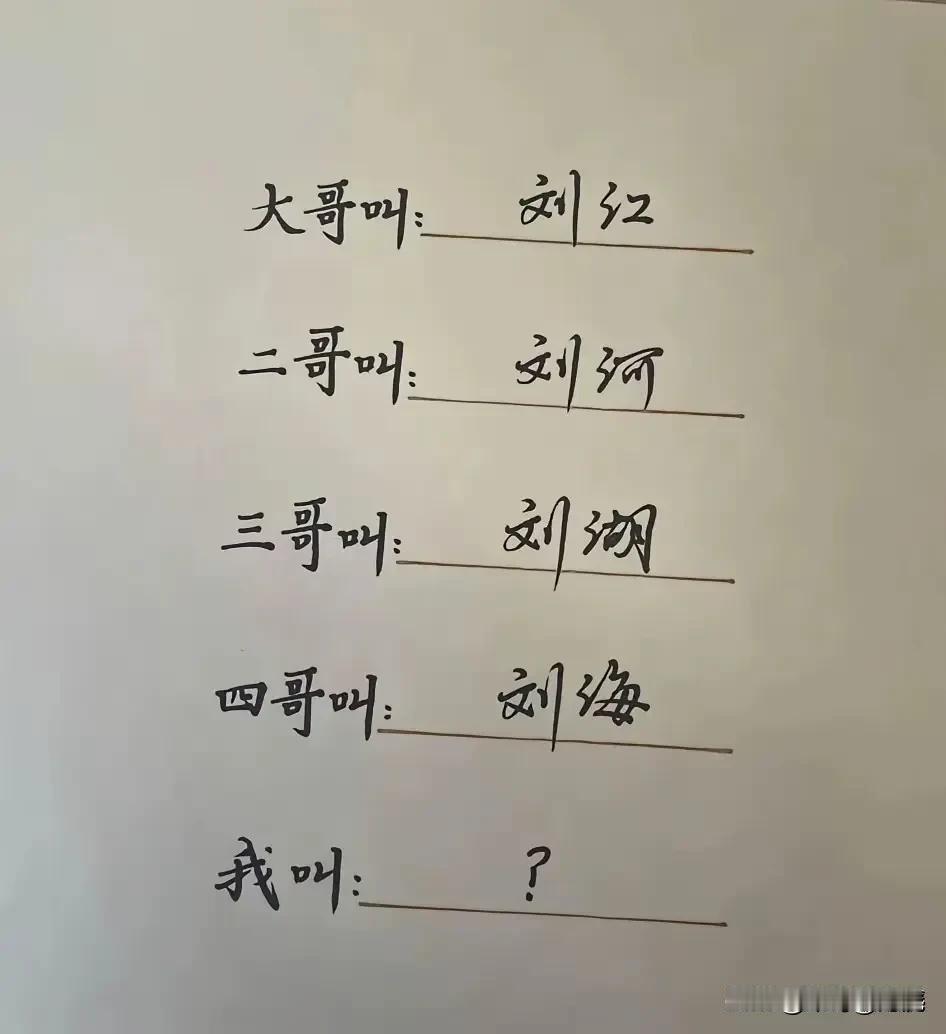 大哥叫：刘江
二哥叫：刘河
三哥叫：刘湖
四哥叫：刘海
我叫：？